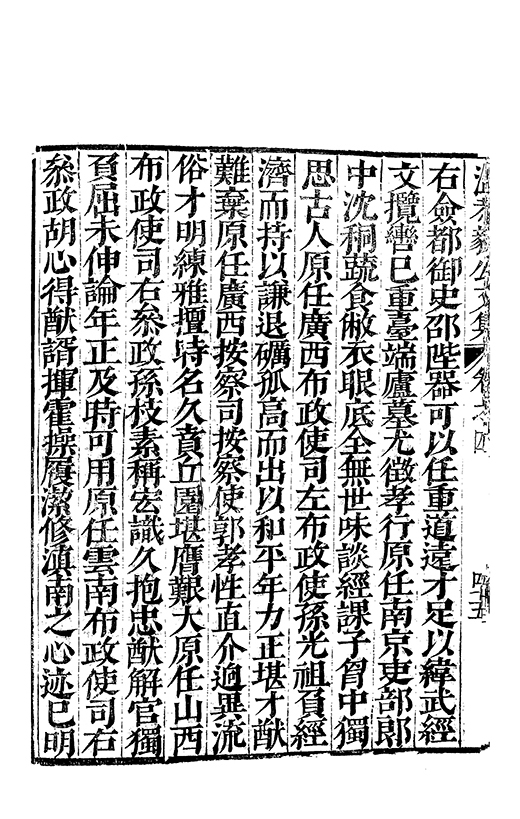 右僉都御史邵陛器可以任重道遠才足以緯武經
文攬轡已重臺端廬墓尤徵孝行原任南京吏部郎
中沈㮔蔬食敝衣眼底全無世味談經課子胷中獨
思古人原任廣西布政使司左布政使孫光祖負經
濟而持以謙退礪孤高而出以和平年力正堪才猷
難棄原任廣西按察司按察使郭孝性直介逈異流
俗才明練雅擅時名久賁丘園堪膺艱大原任山西
布政使司右叅政孫枝素稱宏識久抱忠猷解官獨
負屈未伸論年正及時可用原任雲南布政使司右
叅政胡心得猷諝揮霍操履潔修滇南之心迹已明
温恭毅公文集
四十五